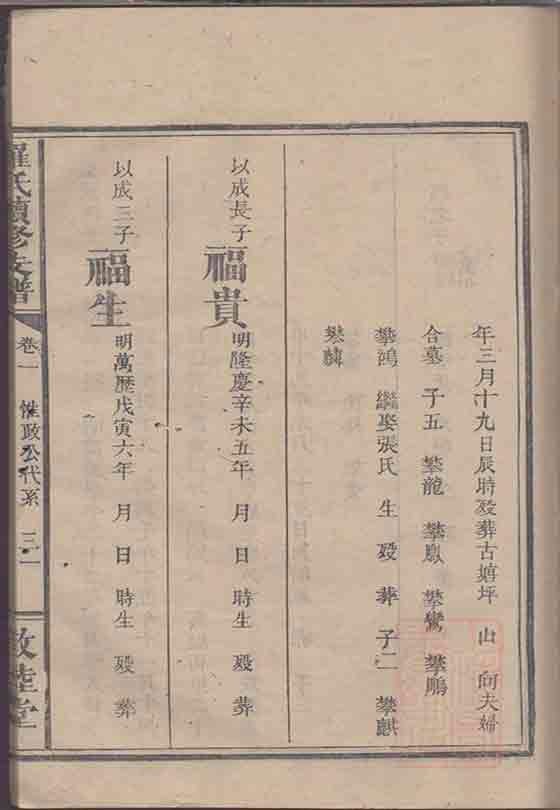 年三月十九日辰時歿葬古塘坪 山 向夫婦
合墓 子五 攀龍 攀鳳 攀鸞 攀鵬
攀鴻 繼娶張氏 生 歿 葬 子二 攀麒
攀
以成長子
福貴
明隆慶辛未五年 月 日 時生 歿 葬
以成三子
福生
明萬歷戊寅六年 月 日 時生 歿 葬
羅氏續修支譜
卷一 惟政公代系 三一
敦睦堂